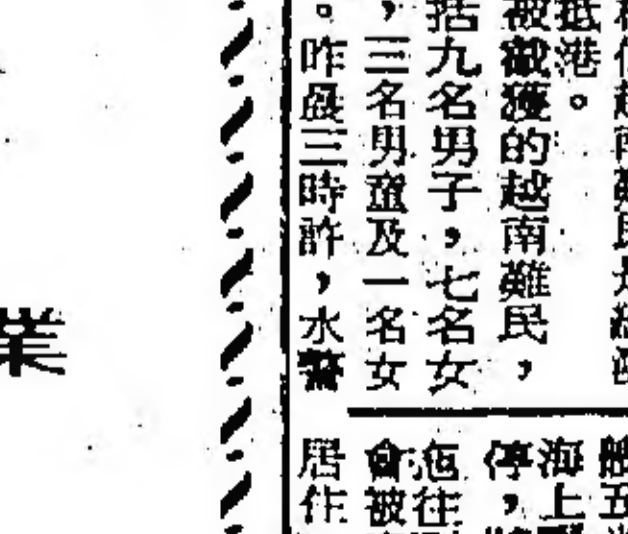 抵港。
被截獲的越南難民，
括九名男子，七名女
，三名男童及一名女
。昨晨三時許，水警
海上
停，
往
會被
居住
業